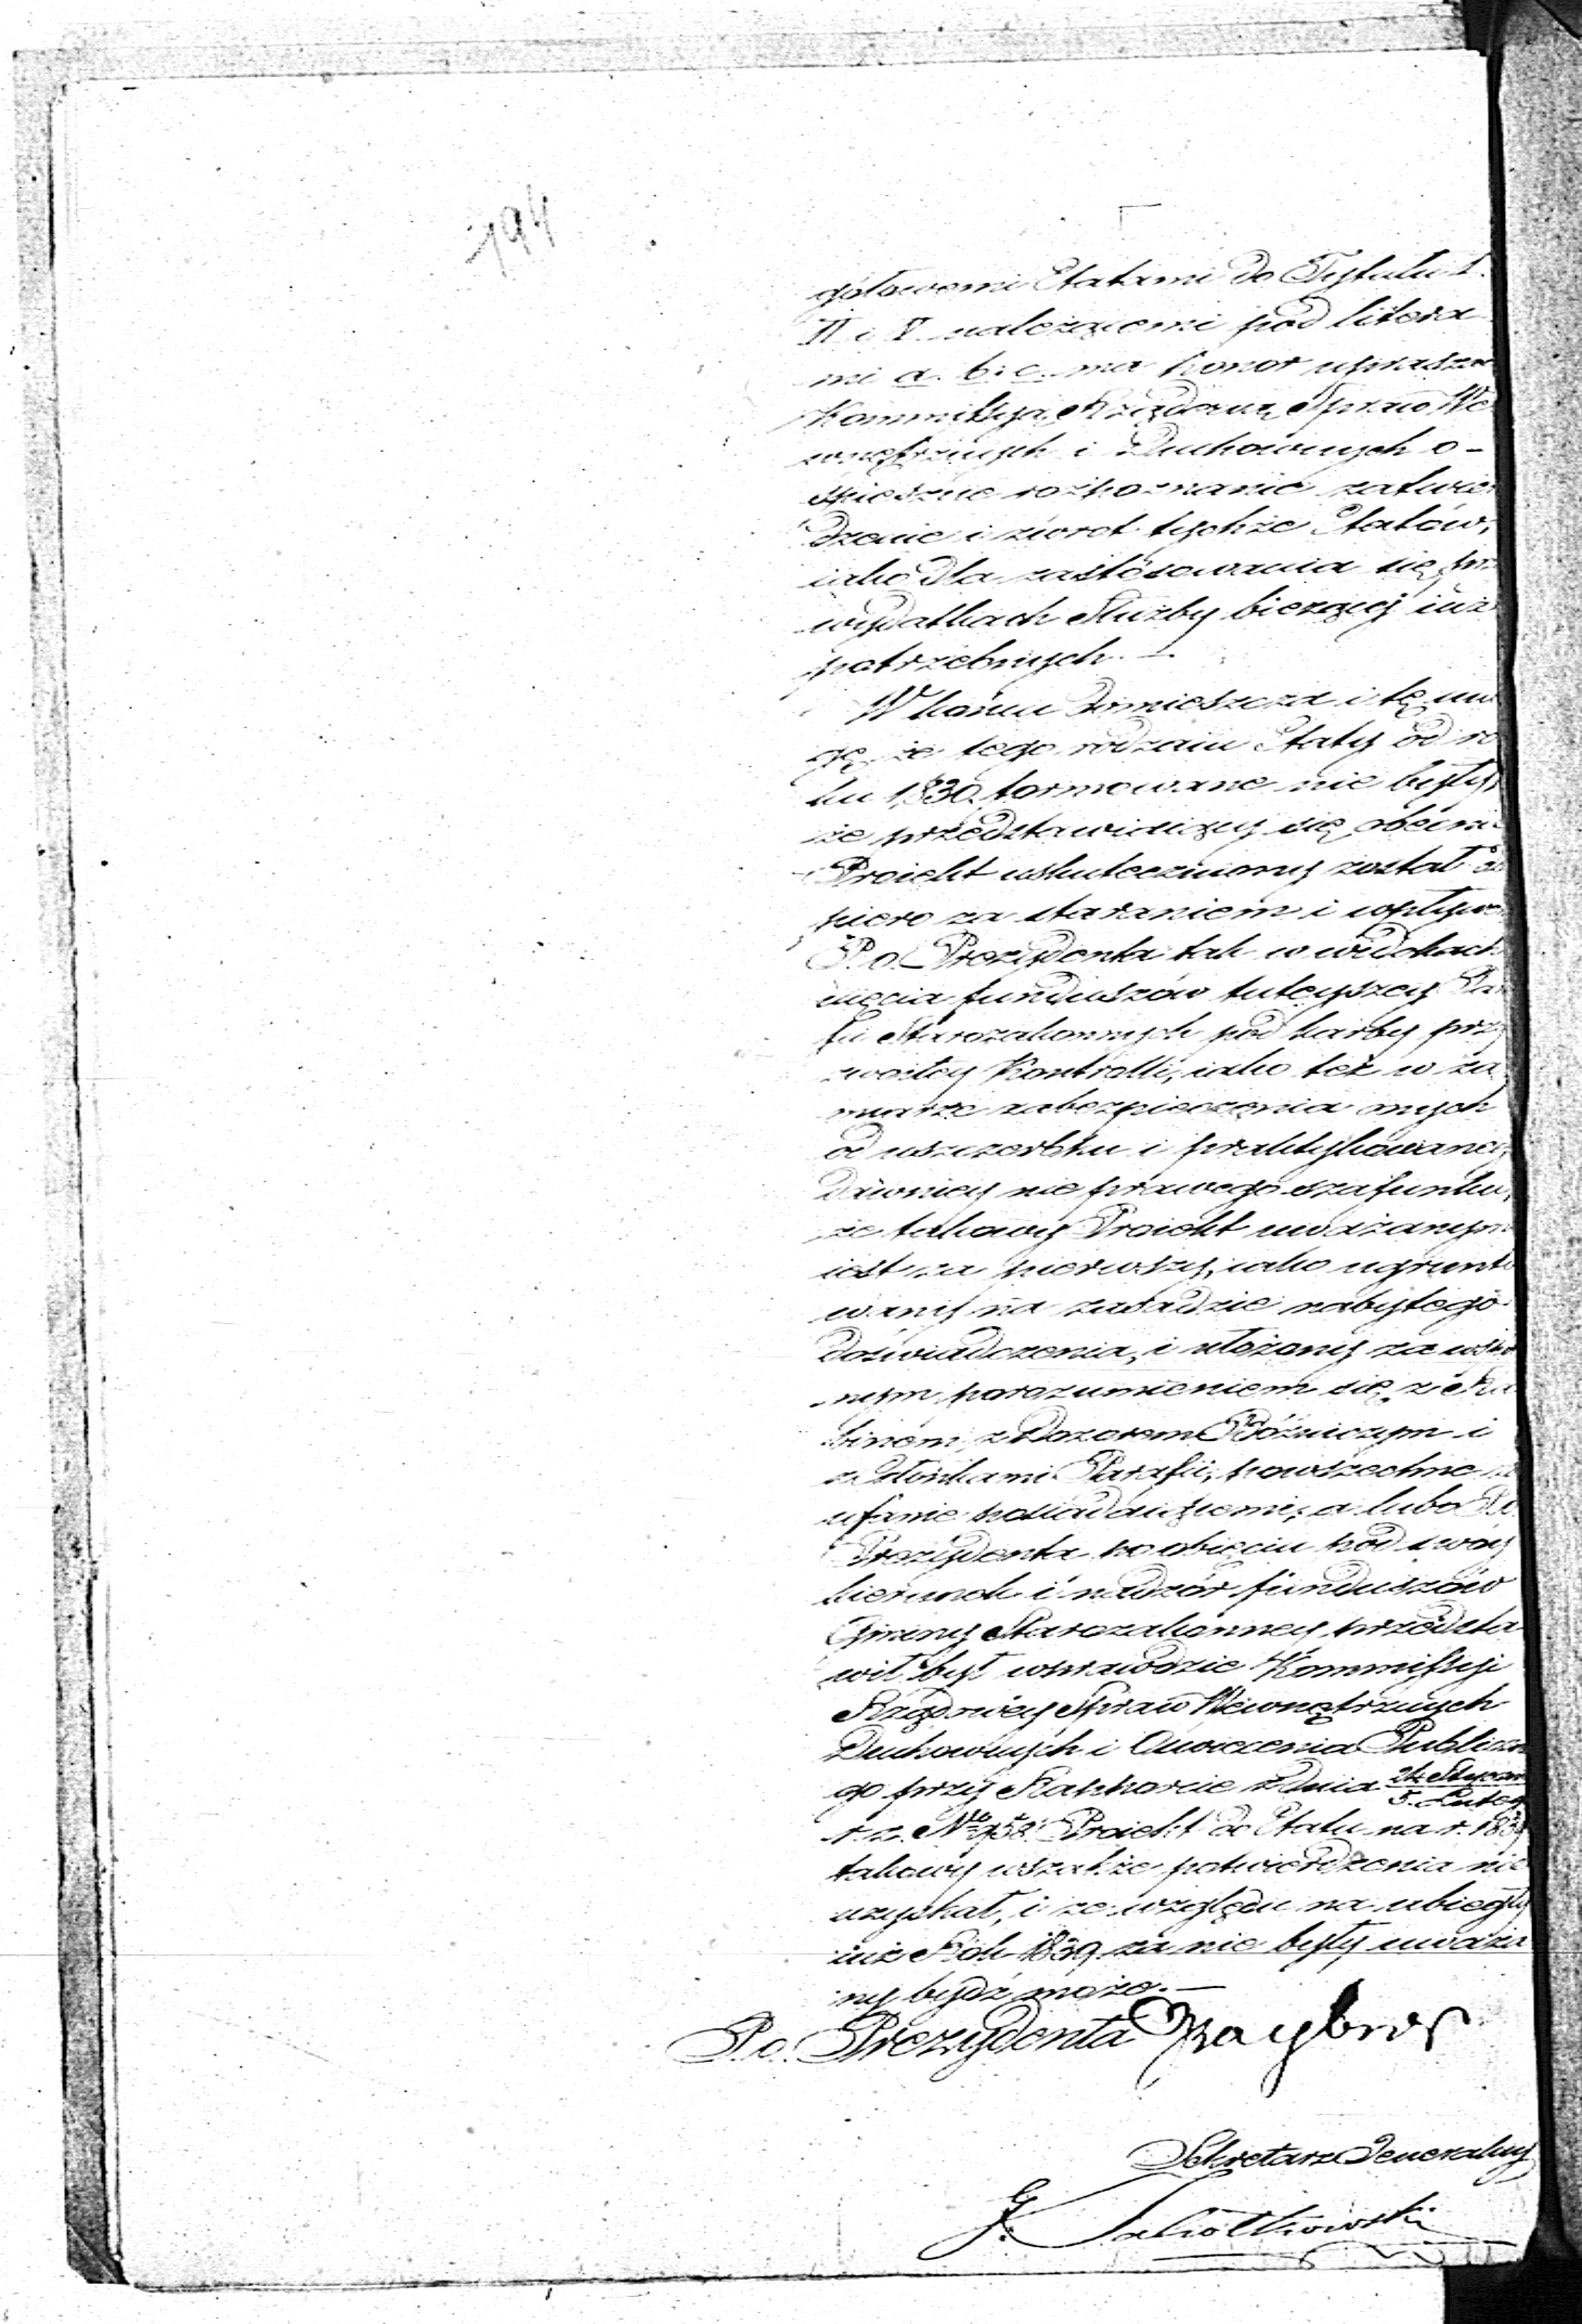 194
gółowemi Etatami do Tytułu I.
II i V. należącemi pod litera
mi a. b. c. ma honor uprasza
Kommissyą Rządową Spraw We
wnętrznych i Duchownych o-
spieszne rozpoznanie zatwier
dzenie i zwrot tychże Etatów,
iako dla zastósowania się prz
wydatkach Służby bieżącej iuż
potrzebnych. —
W końcu domieszcza i tę uwa
gę, że tego rodzaiu Etaty od ro
ku 1830 formowane nie były,
że przedstawiaiący się obecnie
Proiekt uskuteczniony został do
piero za staraniem i wpływe
P. o. Prezydenta tak w widokach
ięcia funduszów tuteyszey Par
fii Starozakonnych pod karby przy
zwoitey Kontrolli, iako też w za
miarze zabezpieczenia onych
od uszczerbku i praktykowaney
dawniey nie prawego szafunku,
że takowy Proiekt uważanym
iest za pierwszy, iako ugrunto
wany na zasadzie nabytego
doświadczenia, i ułożony za wspó
nym porozumieniem się z Ra
binem, z Dozorem Bóżniczym i
z Członkami Parafii, powszechne
ufanie posiadaiącemi; a lubo P. o.
Prezydenta po obięciu pod swóy
kierunek i nadzór funduszów
Gminy Starozakonney przedsta
wił był wprawdzie Kommissyi
Rządowey Spraw Wewnętrznych
Duchownych i Oświecenia Publiczn
go przy Rapporcie z dnia 24 Stycznia / 5 Lutego
r. z. No 958 Proiekt do Etatu na r. 1839
takowy wszakże potwierdzenia nie
uzyskał, i ze względu na ubiegły
iuż Rok 1839 za nie były uważa
ny bydź może. —
P. o. Prezydenta
Sekretarz Jeneralny